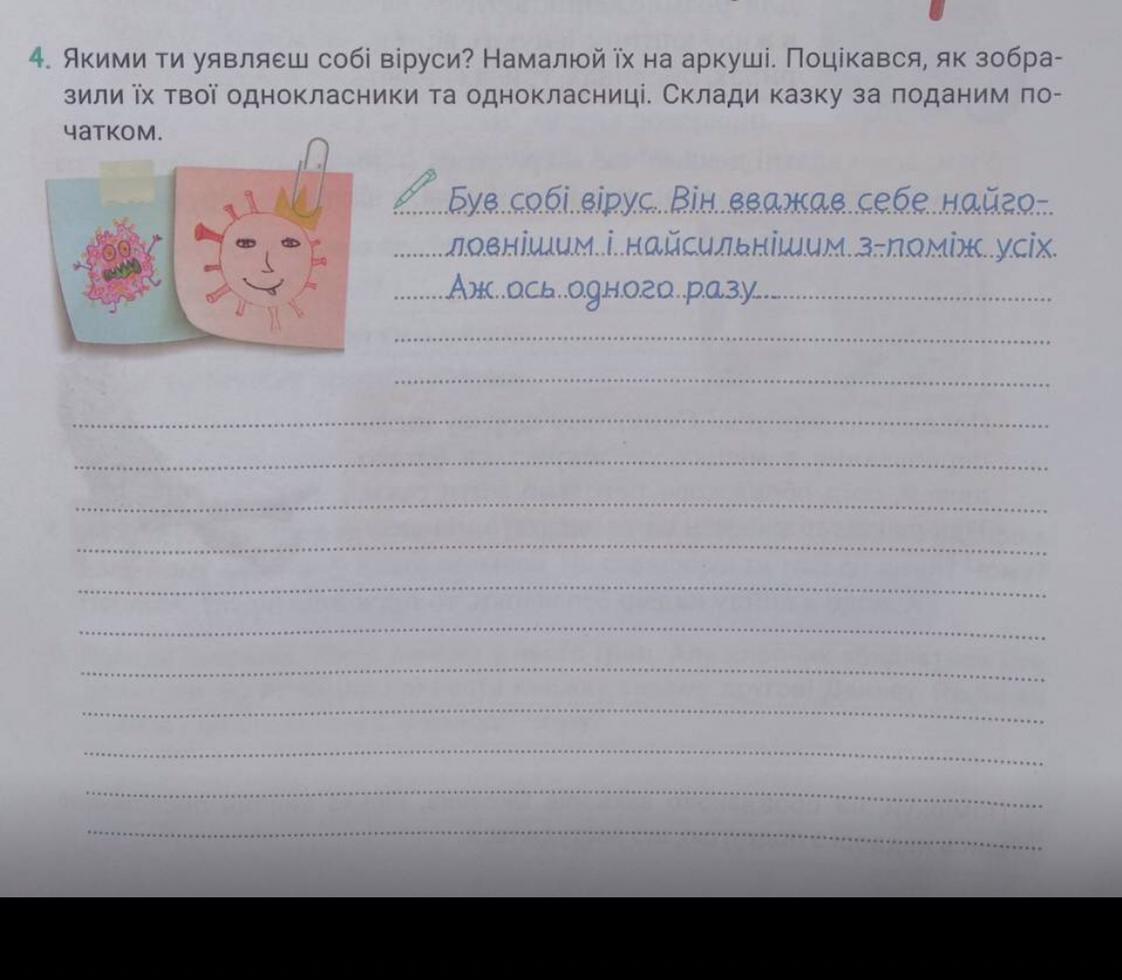 4. Якими ти уявляєш собі віруси? Намалюй їх на аркуші. Поцікався, як зобра-
зили їх твої однокласники та однокласниці. Склади казку за поданим по-
чатком.
Був собі вірус. Він вважав себе найго-
ловнішим і найсильнішим з-поміж усіх.
Аж ось одного разу...